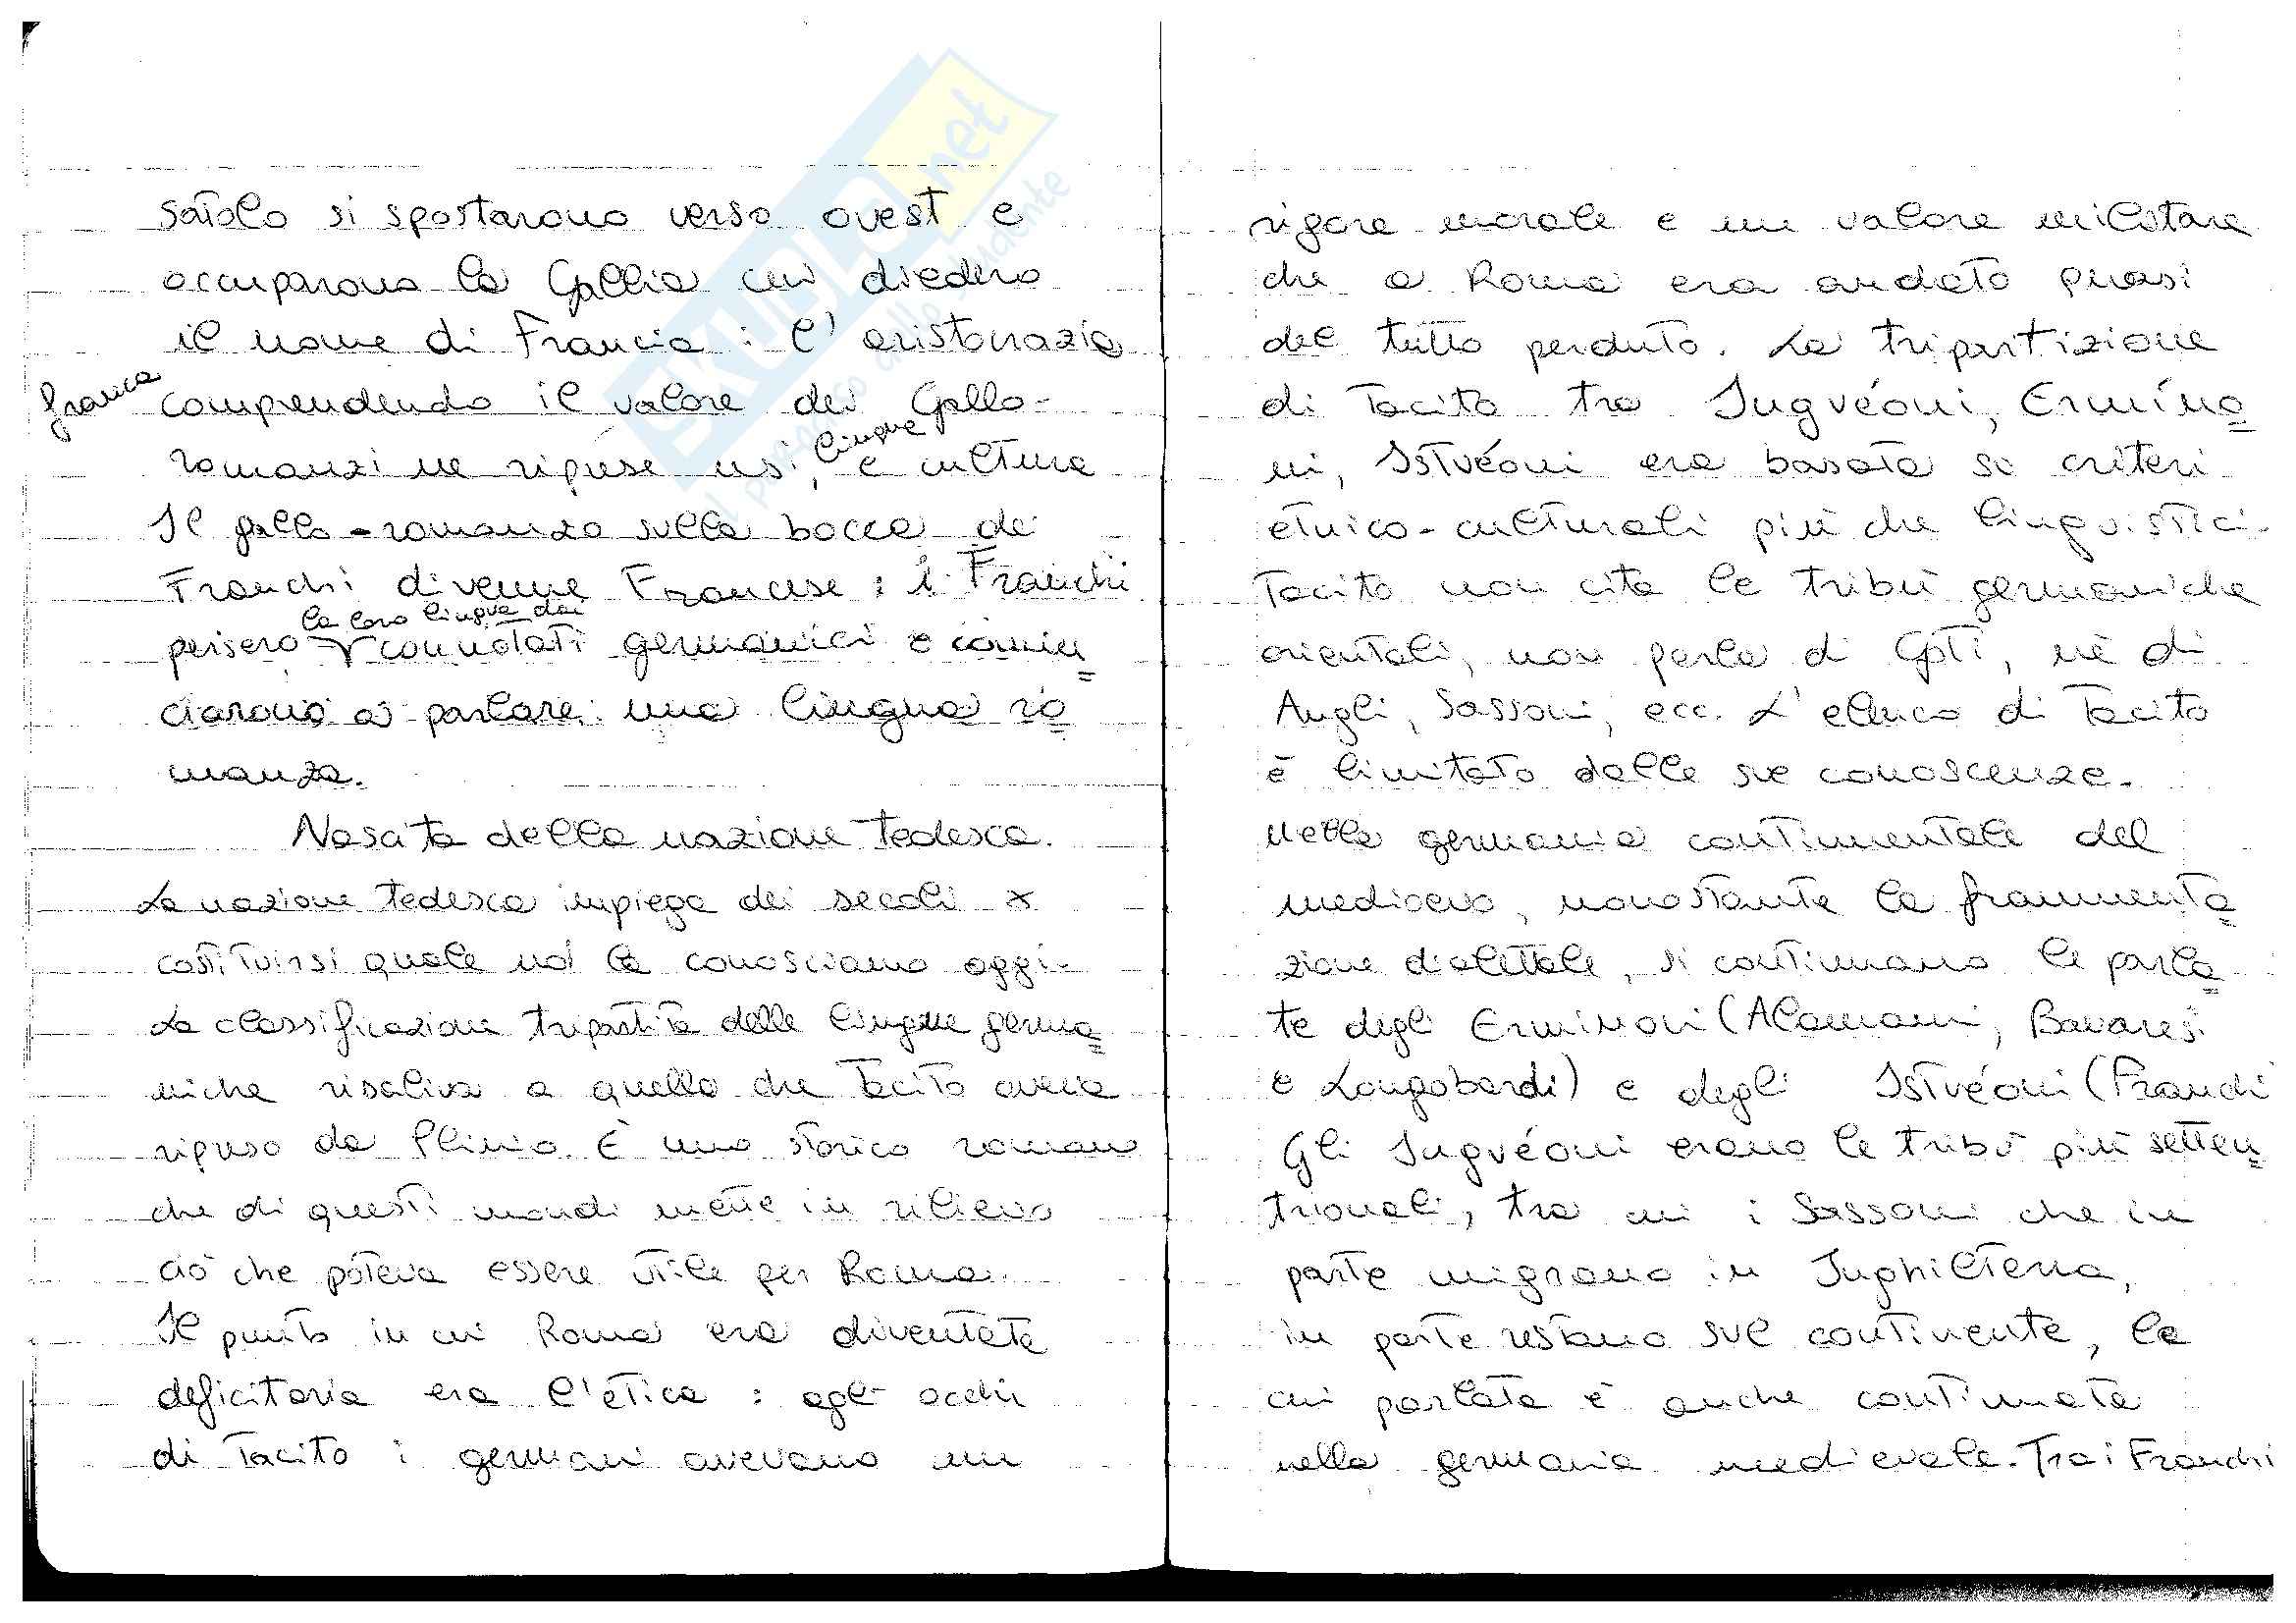 satolo si spostarono verso ovest e
occuparono la Gallia cui diedero
il nome di Francia: l'aristocrazia
franca comprendendo il valore dei Gallo-
romanzi ne riprese usi, lingua e cultura
Il gallo-romanzo sulla bocca dei
Franchi divenne Francese: i Franchi
persero la loro lingua dai connotati germanici e comin
ciarono a parlare una lingua ro
manza.
Nascita della nazione tedesca.
La nazione tedesca impiega dei secoli x
costituirsi quale noi la conosciamo oggi.
La classificazione tripartita delle lingue germa
niche risaliva a quella che Tacito aveva
ripreso da Plinio. È uno storico romano
che di questi mondi mette in rilievo
ciò che poteva essere utile per Roma.
Il punto in cui Roma era diventata
deficitaria era l'etica: agli occhi
di Tacito i germani avevano un
rigore morale e un valore militare
che a Roma era andato quasi
del tutto perduto. La tripartizione
di Tacito tra Ingvéoni, Ermíno
ni, Istvéoni era basata su criteri
etnico-culturali più che linguistici.
Tacito non cita le tribù germaniche
orientali, non parla di Goti, nè di
Angli, Sassoni, ecc. L'elenco di Tacito
è limitato dalle sue conoscenze.
Nella germania continentale del
medioevo, nonostante la frammenta
zione dialettale, si continuano le parla
te degli Erminoni (Alamanni, Bavaresi
e Longobardi) e degli Istvéoni (Franchi
Gli Ingvéoni erano le tribù più setten
trionali, tra cui i Sassoni che in
parte migrano in Inghilterra,
in parte restano sul continente, la
cui parlata è anche continuata
nella germania medievale. Tra i Franchi
SKUOLA.net